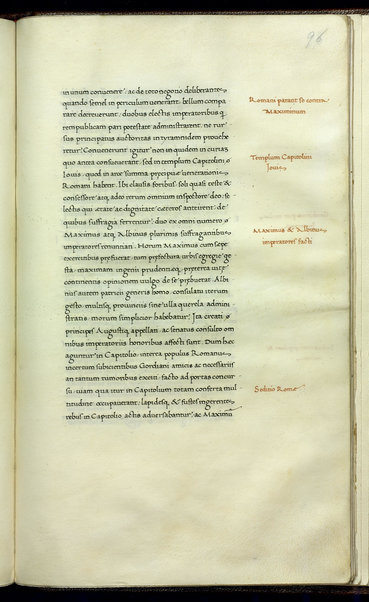 96
in unum convenere. ac de toto negotio deliberantes
quando semel in periculum venerant. bellum compa
rare decreverunt. duobus electis imperatoribus q
rempublicam pari potestate administrarent. ne rur
sus principatus auctoritas in tyrannidem provehe
retur. Convenerunt igitur non in quidem in curiam
quo antea consueverant. sed in templum Capitolini
Iovis. quod in arce summa precipua veneratione
Romani habent. Ibi clausis foribus soli quasi teste &
consessore atq; adeo rerum omnium inspectore deo. se
lectis qui etate ac dignitate ceteros anteirent. de
quibus suffragia ferrentur. duo ex omni numero
Maximus atq; Albinus plurimis suffragantibus
imperatores renunciari. Horum Maximus cum sepe
exercitibus prefuerat. tum prefectura urbis egregie ge
sta. maximam ingenii prudentieq; preterea vite
continentis opinionem vulgo de se prebuerat. Albi
nus autem patricii generis homo. consulatu iterum
gesto. multisq; provinciis sine ulla querela admini
stratis. morum simplicior habebatur. Ita creati
principes Augustiq; appellati. ac senatus consulto om
nibus imperatoriis honoribus affecti sunt. Dum hec
aguntur in Capitolio. interea populus Romanus
incertum subicientibus Gordiani amicis ac necessariis
an tantum rumoribus exciti. facto ad portas concur
su. viam qua itur in Capitolium totam conferta mul
titudine occupaverant. lapidesq; & fustes ingerentes.
rebus in Capitolio actis adversabantur. ac Maximū
Romani parant se contra
Maximinum
Templum Capitolini
Iovis
Maximus & Albinus
imperatores facti
Seditio Rome